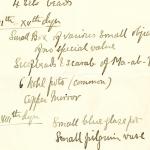 4 Sets beads
XIth - XXth dyn
Small Box of various small objec
of no special value
Scarab of Ma-at-
6 kohl pots (common)
Copper Mirror
XVIIIth dyn Small blue glaze pot
Small pilgrim vase